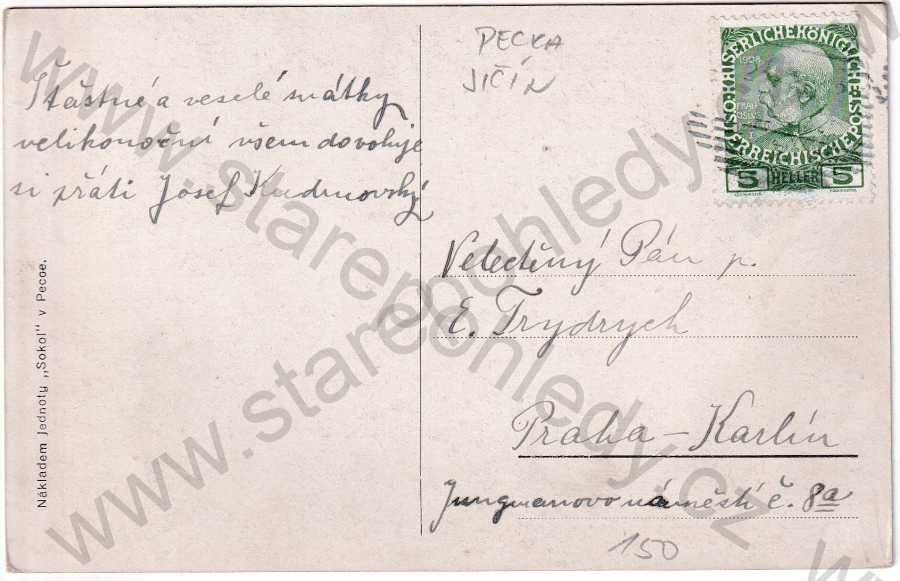 Šťastné a veselé svátky
velikonoční všem dovoluje
si přáti Josef Kudrnovský
Nákladem Jednoty „Sokol" v Pecce.
PECKA
JIČÍN
KAISERLICHEKÖNIGLICHE
ÖSTERREICHISCHE POST
1908
5 HELLER 5
Velectěný Pán p.
E. Frydrych
Praha – Karlín
Jungmanovo náměstí č. 8a
150
www.starepohledy.cz
www.starepohledy.cz